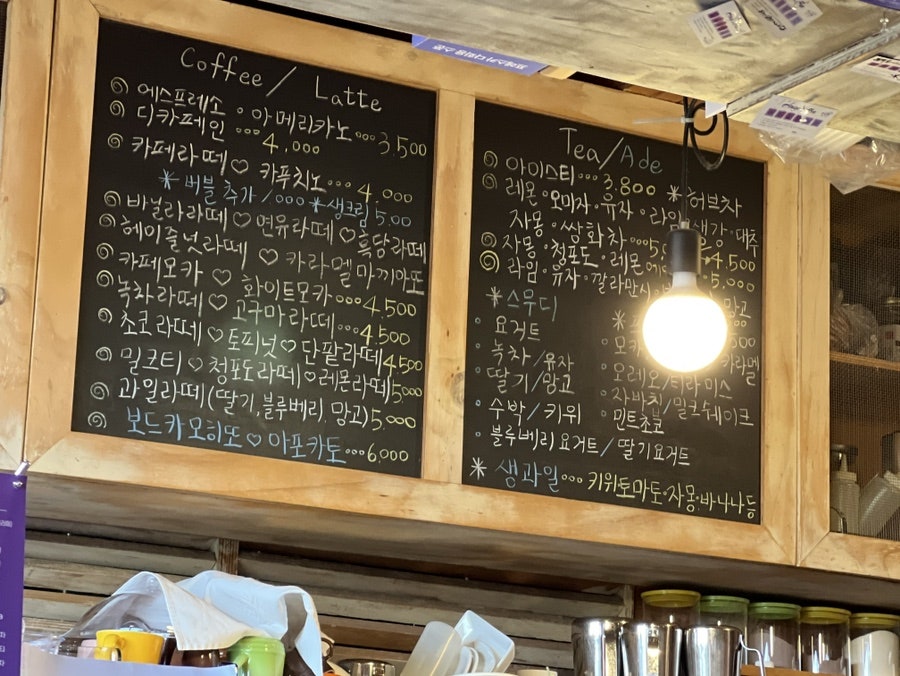 Coffee / Latte
에스프레소 · 아메리카노 ··· 3,500
디카페인 ··· 4,000
카페라떼 ♡ 카푸치노 ··· 4,000
* 버블추가 1,000 * 생크림 500
바닐라라떼 ♡ 연유라떼 ♡ 흑당라떼
헤이즐넛라떼 ♡ 카라멜마끼아또
카페모카 ♡ 화이트모카 ··· 4,500
녹차라떼 ♡ 고구마라떼 ··· 4,500
초코라떼 ♡ 토피넛 ♡ 단팥라떼 4,500
밀크티 ♡ 청포도라떼 ♡ 레몬라떼 5,000
과일라떼 (딸기, 블루베리, 망고) 5,000
보드카모히또 ♡ 아포카토 ··· 6,000
Tea / Ade
아이스티 ··· 3,800 * 허브차
레몬 · 오미자 · 유자 · 생강 · 대추
자몽 · 쌍화차 ··· 4,500
자몽 · 청포도 · 레몬 5,000
라임 · 유자 · 깔라만시
* 스무디
요거트
녹차 / 유자
딸기 / 망고
수박 / 키위
블루베리요거트 / 딸기요거트
오레오 / 티라미스
자바칩 / 밀크쉐이크
민트초코
* 생과일 ··· 키위 토마토 · 자몽 · 바나나 등